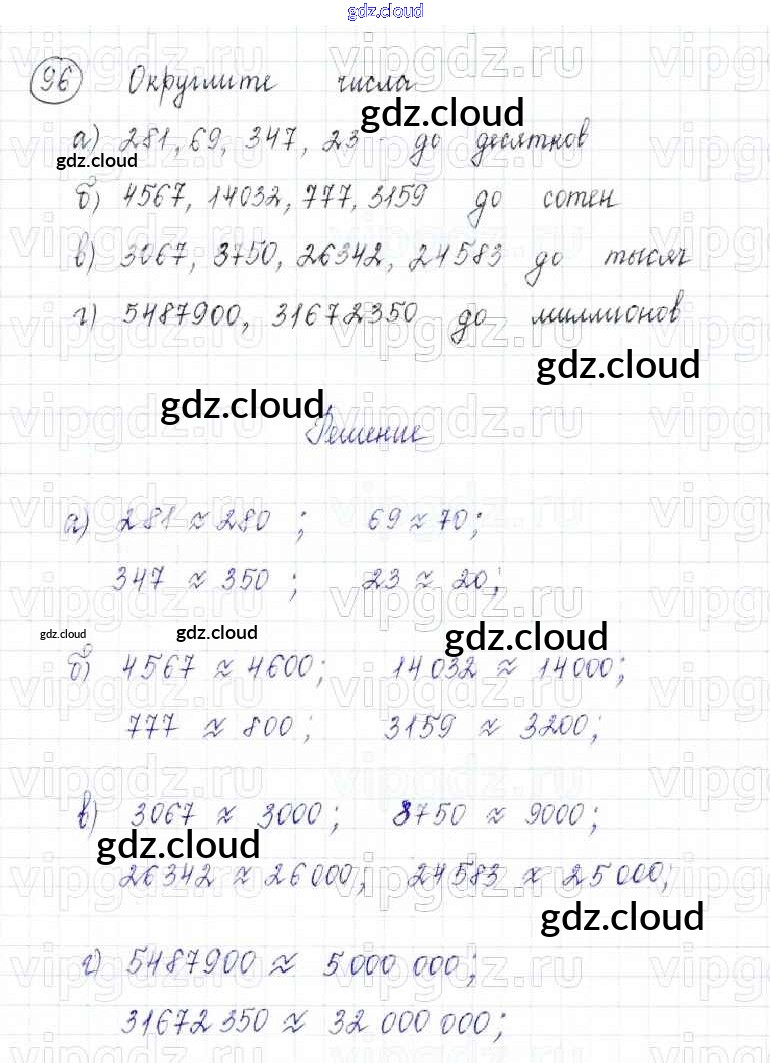 gdz.cloud
96 Округлите числа
gdz.cloud
а) 281, 69, 347, 23 до десятков
gdz.cloud
б) 4567, 14032, 777, 3159 до сотен
в) 3067, 3750, 26342, 24583 до тысяч
г) 5487900, 31672350 до миллионов
gdz.cloud
gdz.cloud
Решение
а) 281 ≈ 280 ; 69 ≈ 70;
347 ≈ 350 ; 23 ≈ 20;
gdz.cloud gdz.cloud gdz.cloud
б) 4567 ≈ 4600; 14032 ≈ 14000;
777 ≈ 800 ; 3159 ≈ 3200;
vipgdz.ru
в) 3067 ≈ 3000 ; 8750 ≈ 9000;
gdz.cloud
26342 ≈ 26000; 24583 ≈ 25000;
gdz.cloud
г) 5487900 ≈ 5000 000;
31672350 ≈ 32 000 000;